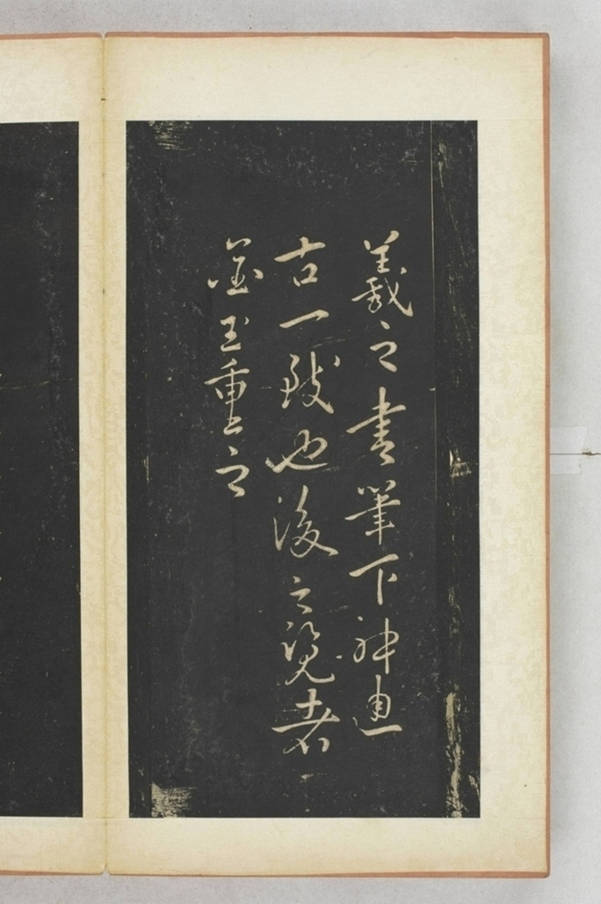 羲之書筆下神迪
古一致也後之覽者
金玉重之